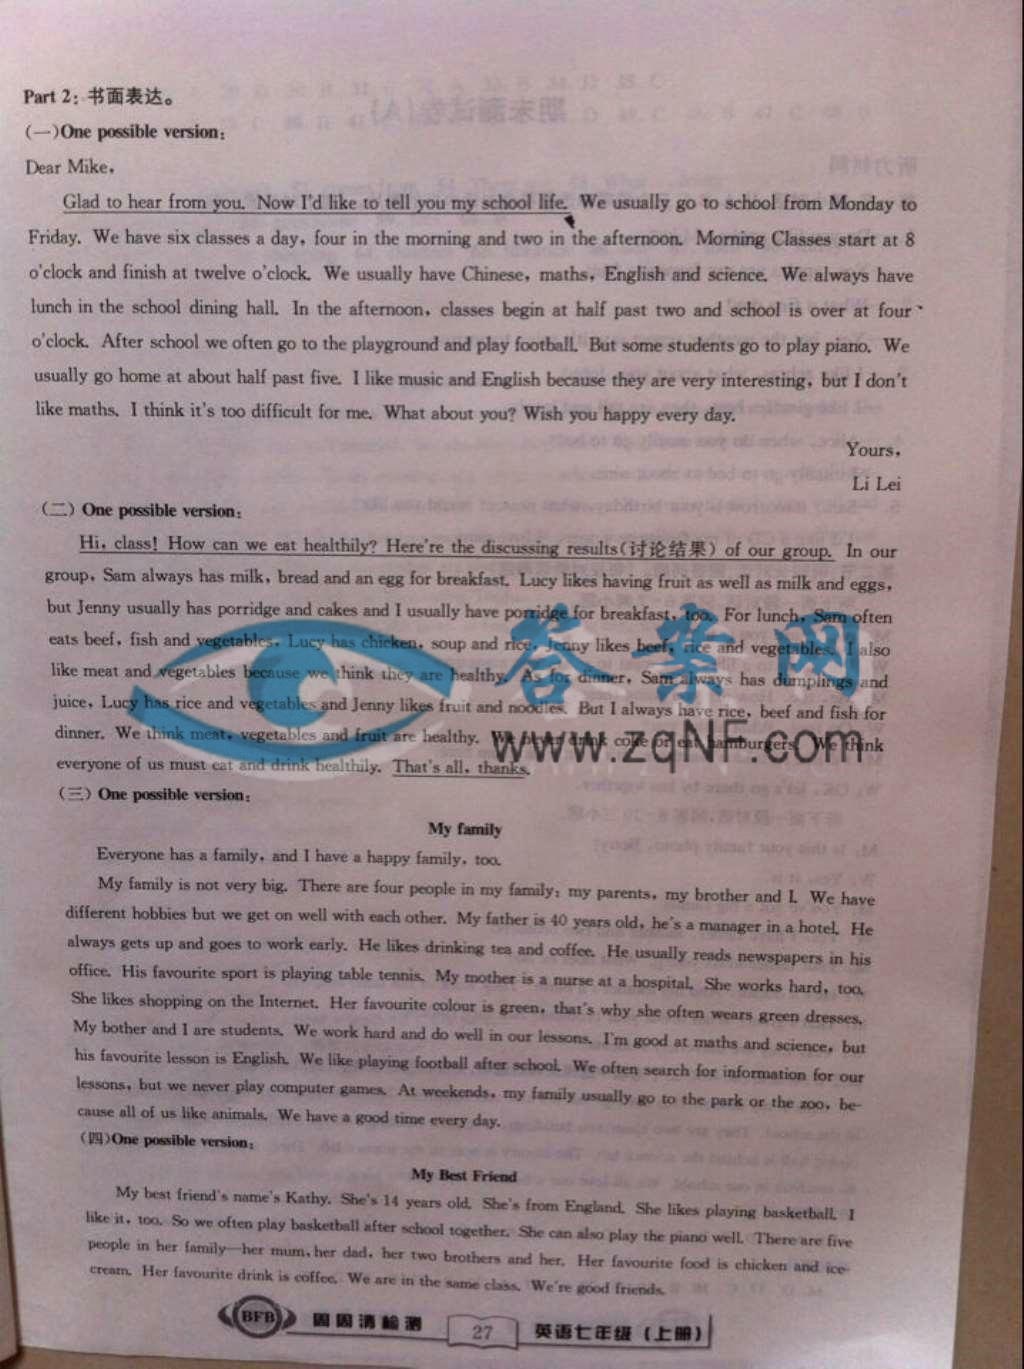 Part 2: 书面表达。
(一)One possible version:
Dear Mike,
Glad to hear from you. Now I'd like to tell you my school life. We usually go to school from Monday to
Friday. We have six classes a day, four in the morning and two in the afternoon. Morning Classes start at 8
o'clock and finish at twelve o'clock. We usually have Chinese, maths, English and science. We always have
lunch in the school dining hall. In the afternoon, classes begin at half past two and school is over at four
o'clock. After school we often go to the playground and play football. But some students go to play piano. We
usually go home at about half past five. I like music and English because they are very interesting, but I don't
like maths. I think it's too difficult for me. What about you? Wish you happy every day.
Yours,
Li Lei
(二) One possible version:
Hi, class! How can we eat healthily? Here're the discussing results(讨论结果) of our group. In our
group, Sam always has milk, bread and an egg for breakfast. Lucy likes having fruit as well as milk and eggs,
but Jenny usually has porridge and cakes and I usually have porridge for breakfast, too. For lunch, Sam often
eats beef, fish and vegetables, Lucy has chicken, soup and rice, Jenny likes beef, rice and vegetables. I also
like meat and vegetables because we think they are healthy. As for dinner, Sam always has dumplings and
juice, Lucy has rice and vegetables and Jenny likes fruit and noodles. But I always have rice, beef and fish for
dinner. We think meat, vegetables and fruit are healthy. We drink coke or eat hamburgers. We think
everyone of us must eat and drink healthily. That's all, thanks.
答案网
www.zqNF.com
(三) One possible version:
My family
Everyone has a family, and I have a happy family, too.
My family is not very big. There are four people in my family: my parents, my brother and I. We have
different hobbies but we get on well with each other. My father is 40 years old, he's a manager in a hotel. He
always gets up and goes to work early. He likes drinking tea and coffee. He usually reads newspapers in his
office. His favourite sport is playing table tennis. My mother is a nurse at a hospital. She works hard, too.
She likes shopping on the Internet. Her favourite colour is green, that's why she often wears green dresses.
My bother and I are students. We work hard and do well in our lessons. I'm good at maths and science, but
his favourite lesson is English. We like playing football after school. We often search for information for our
lessons, but we never play computer games. At weekends, my family usually go to the park or the zoo, be-
cause all of us like animals. We have a good time every day.
(四)One possible version:
My Best Friend
My best friend's name's Kathy. She's 14 years old. She's from England. She likes playing basketball. I
like it, too. So we often play basketball after school together. She can also play the piano well. There are five
people in her family—her mum, her dad, her two brothers and her. Her favourite food is chicken and ice-
cream. Her favourite drink is coffee. We are in the same class. We're good friends.
BFB 周周清检测 27 英语七年级(上册)